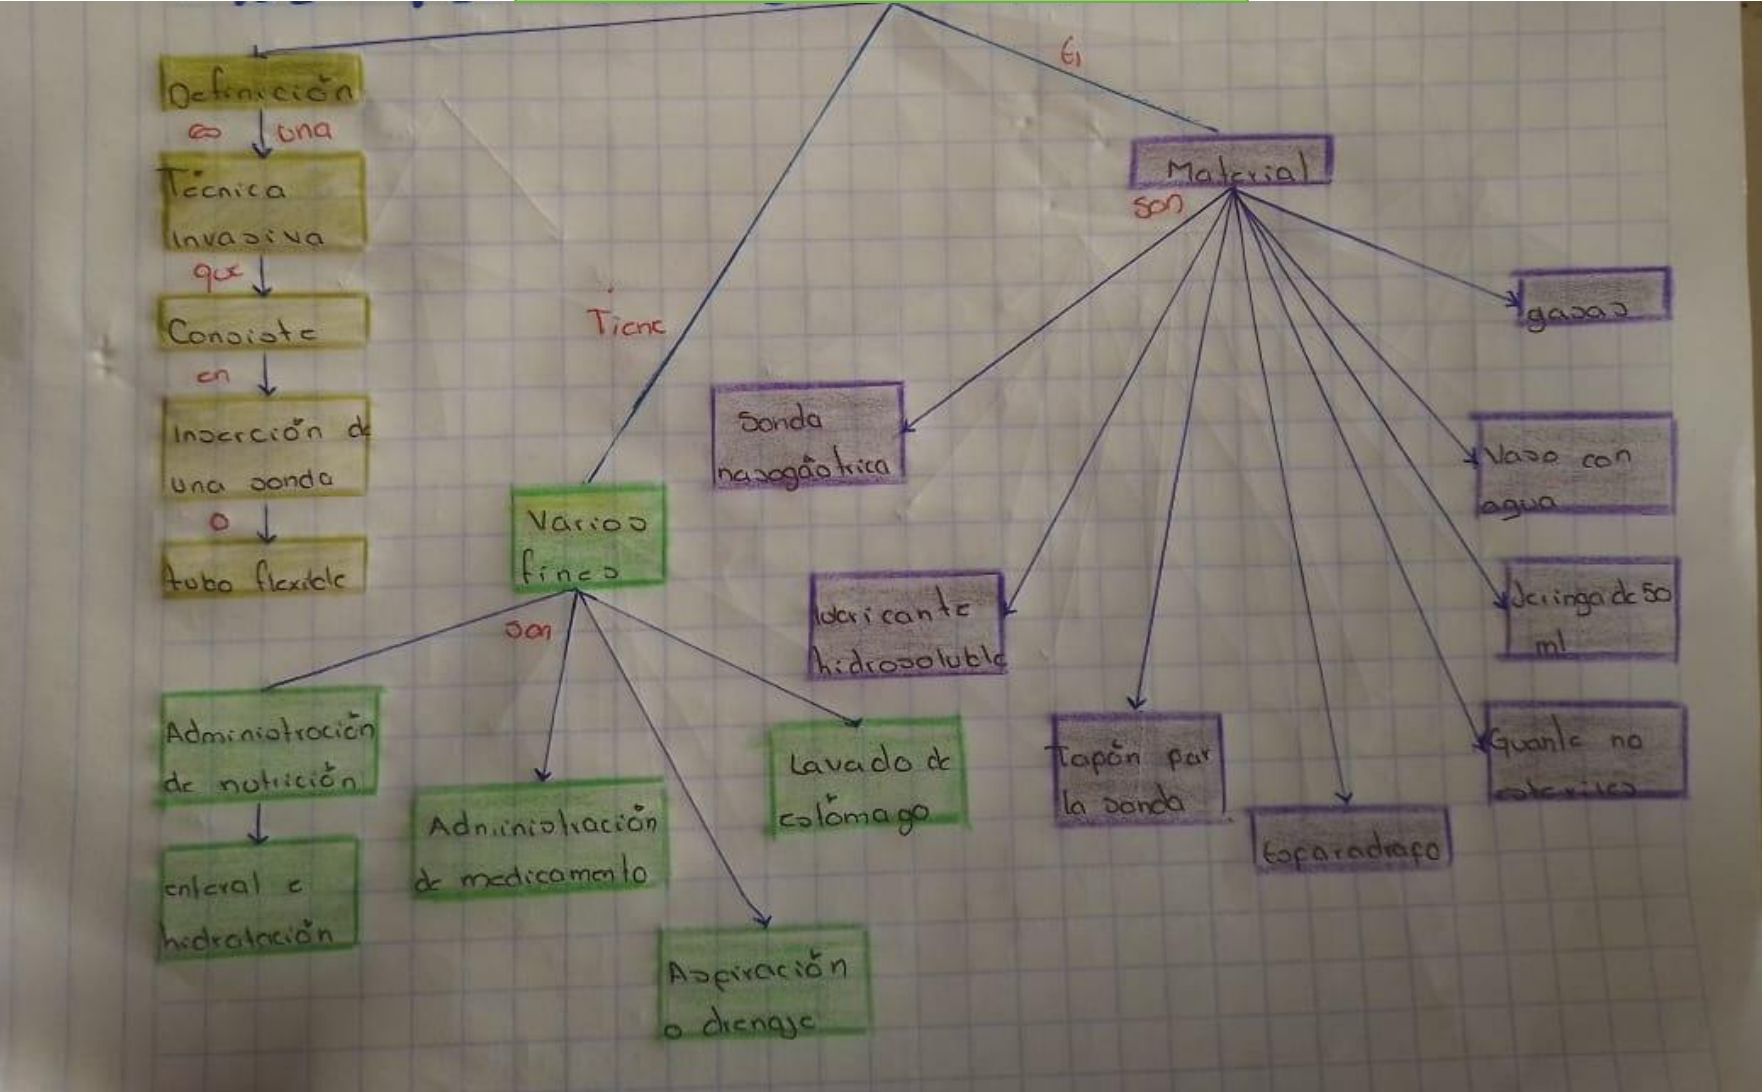 Definición
es una
Técnica
invasiva
que
Consiste
en
Inserción de
una sonda
o
tubo flexible
Tiene
Varios
fines
son
Administración
de nutrición
enteral e
hidratación
Administración
de medicamento
Aspiración
o drenaje
Lavado de
estómago
El
Material
son
Sonda
nasogástrica
lubricante
hidrosoluble
Tapón par
la sonda
Esparadrapo
Guante no
esteriles
Jeringa de 50
ml
Vaso con
agua
gasas